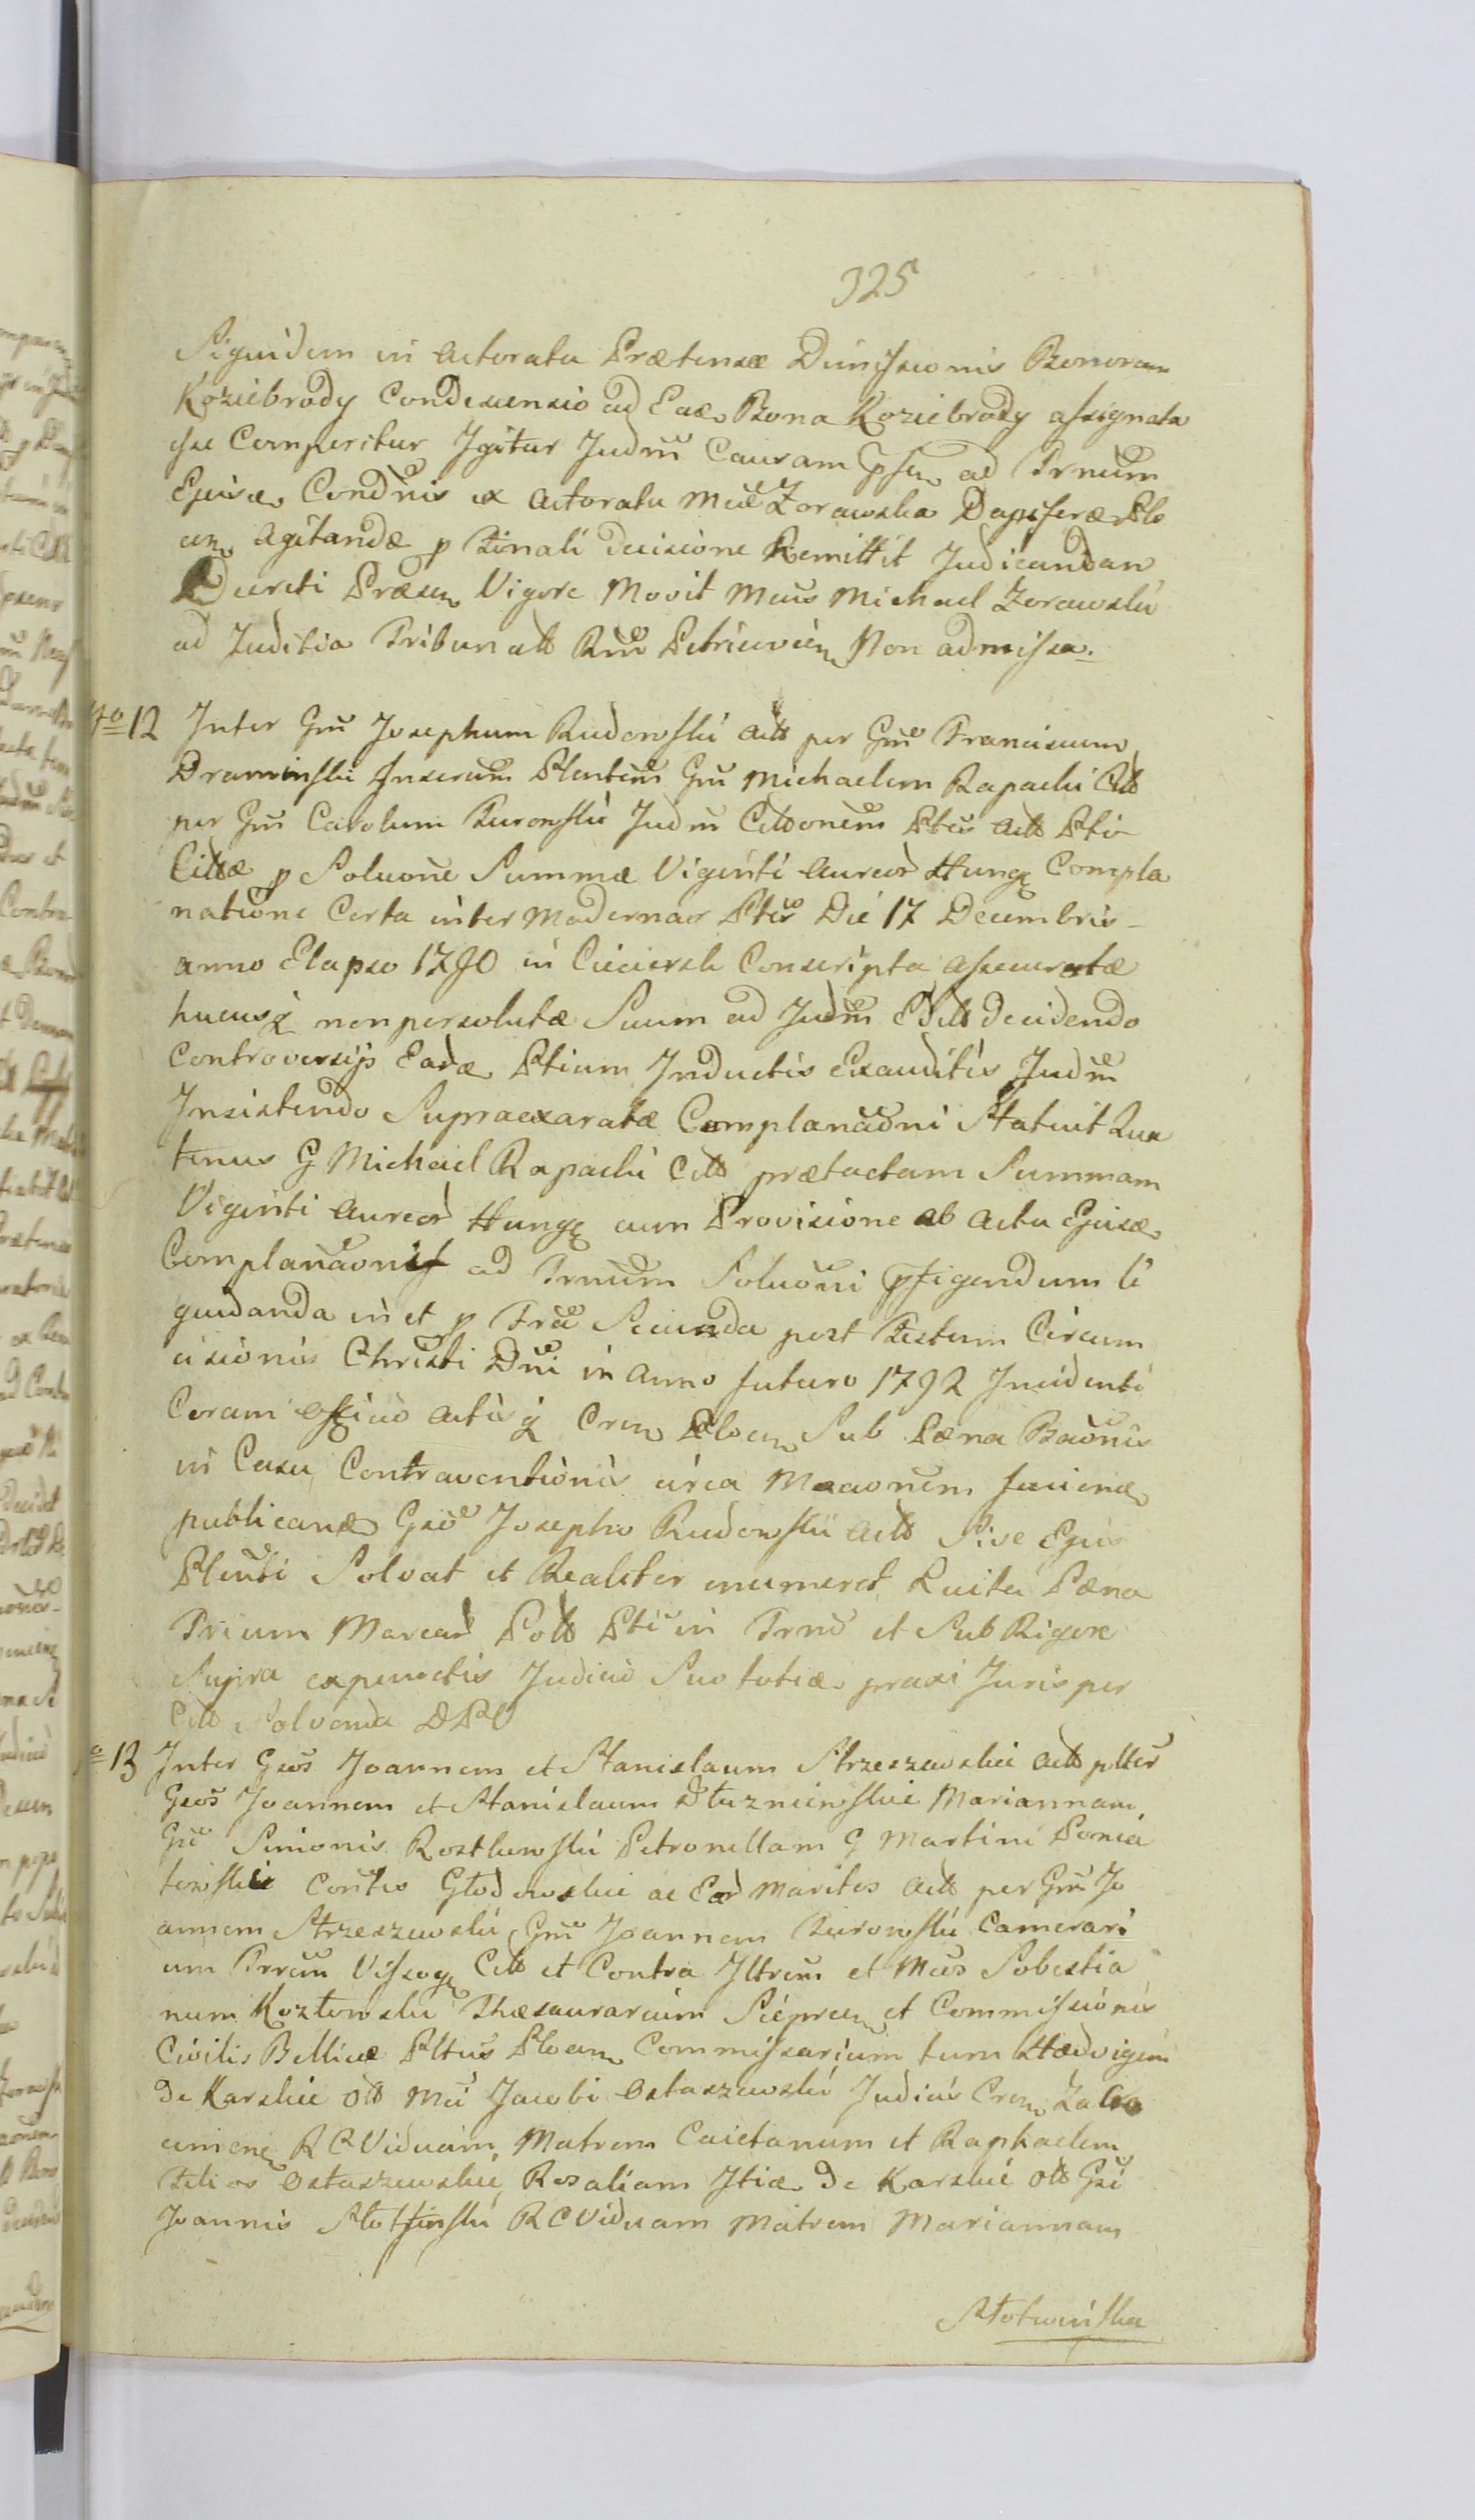 325
Siquidem in Actoratu Prætensæ Dimissionis Bonorum
Koziebrody Condescensio ad Eaē Bona Koziebrody assignata
esse Comperitur Igitur Judm̃ Causam Pñs̃ ad Trnũm
Ejusæ Condnis ex Actoratu Mcæ Zorawska Dapiferæ Plo
cen Agitandæ p Finali decisione Remittit Judicandam
Decreti Præsen Vigore Movit Mcus Michael Zorawski
ad Juditia Tribunatt Rni Petricovien Non admissa.
N̊ 12 Inter Gñm Josephum Rudowski Actt per Gñm Franciscum
Draminski Inscrum Plentem Gñm Michaelem Rapacki Citt
per Gñm Carolum Turowski Judm̃ Cittonem Ptis Actt Pti
Cittæ p Soluone Summæ Viginti Aureor Hung Compla
natione Certa inter Modernas Ptes Die 17 Decembris
anno Elapso 1790 in Ciecierzk Conscripta Assecuratæ
hucusq non persolutæ Suum ad Judm̃ Editt decidendo
Controversijs Earæ Ptium Inductis Exauditis Judm̃
Insistendo Supraexaratæ Complanaõni Statuit Qua
tenus G Michael Rapacki Citt prætactam Summam
Viginti Aureor Hung cum Provisione ab Actu Ejusæ
Complanaonis ad Trnũm Soluõni Pfigendum li
quidanda in et p Fria Secunda post Festum Circum
cisionis Christi Dñi in Anno futuro 1792 Incidenti
Coram Officio Actisq Cren Plocen Sub Pæna Baõnis
in Casu Contraventionis circa Maaonem faciena
publicana Gso Josepho Rudowski Actt Sive Ejus
Plenti Solvat et Realiter enumeret Luita Pæna
Trium Marcar Pott Pti in Trno et Sub Rigore
Supra expunctis Judicio Suo totiæ praxi Juris per
Citt Solvenda DPO
N̊ 13 Inter Gsos Joannem et Stanislaum Strzeszewskie Actt plter
Gsos Joannem et Stanislaum Dłuzniewskie Mariannam
Gñi Simonis Rostkowski Petronellam G Martini Ponia
towskie Contes Głodowskie ac Ear Maritos Actt per Gñm Jo
annem Strzeszewski, Gñm Joannem Turowski Camerari
um Trrem Vissog Citt et Contra Iltrem et Mcos Sobestia
num Kozłowski Thesaurarium Sieprcen et Commissionis
Civilis Bellicæ Pltus Plocen Commissarium tum Hædvigem
de Karskie ott Mci Jacobi Ostaszewski Judicis Cren Zakro
cimene RC Viduam Matrem Caietanum et Raphaelem
Filios Ostaszewskie, Rosaliam Itiæ de Karskie ott Gsi
Joannis Słotwinski RC Viduam Matrem Mariannam
Słotwinska